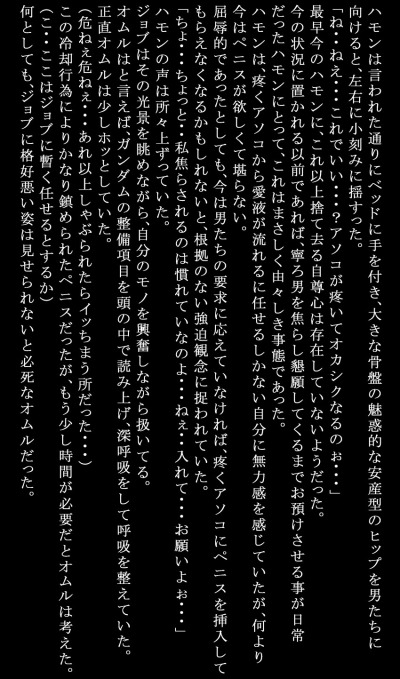 ハモンは言われた通りにベッドに手を付き、大きな骨盤の魅惑的な安産型のヒップを男たちに
向けると、左右に小刻みに揺すった。
「ね・・ねぇ・・これでいい・・・？アソコが疼いてオカシクなるのぉ・・・」
最早今のハモンに、これ以上捨て去る自尊心は存在していないようだった。
今の状況に置かれる以前であれば、寧ろ男を焦らし懇願してくるまでお預けさせる事が日常
だったハモンにとって、これはまさしく由々しき事態であった。
ハモンは、疼くアソコから愛液が流れるに任せるしかない自分に無力感を感じていたが、何より
今はペニスが欲しくて堪らない。
屈辱的であったとしても、今は男たちの要求に応えていなければ、疼くアソコにペニスを挿入して
もらえなくなるかもしれないと、根拠のない強迫観念に捉われていた。
「ちょ・・ちょっと・・私焦らされるのは慣れていなのよ・・・ねぇ・・入れて・・・お願いよぉ・・・」
ハモンの声は所々上ずっていた。
ジョブはその光景を眺めながら、自分のモノを興奮しながら扱いてる。
オムルはと言えば、ガンダムの整備項目を頭の中で読み上げ、深呼吸をして呼吸を整えていた。
正直オムルは少しホッとしていた。
（危ねぇ危ねぇ・・・あれ以上しゃぶられたらイッちまう所だった・・・）
この冷却行為によりかなり鎮められたペニスだったが、もう少し時間が必要だとオムルは考えた。
（こ・・ここはジョブに暫く任せるとするか）
何としても、ジョブに格好悪い姿は見せられないと必死なオムルだった。